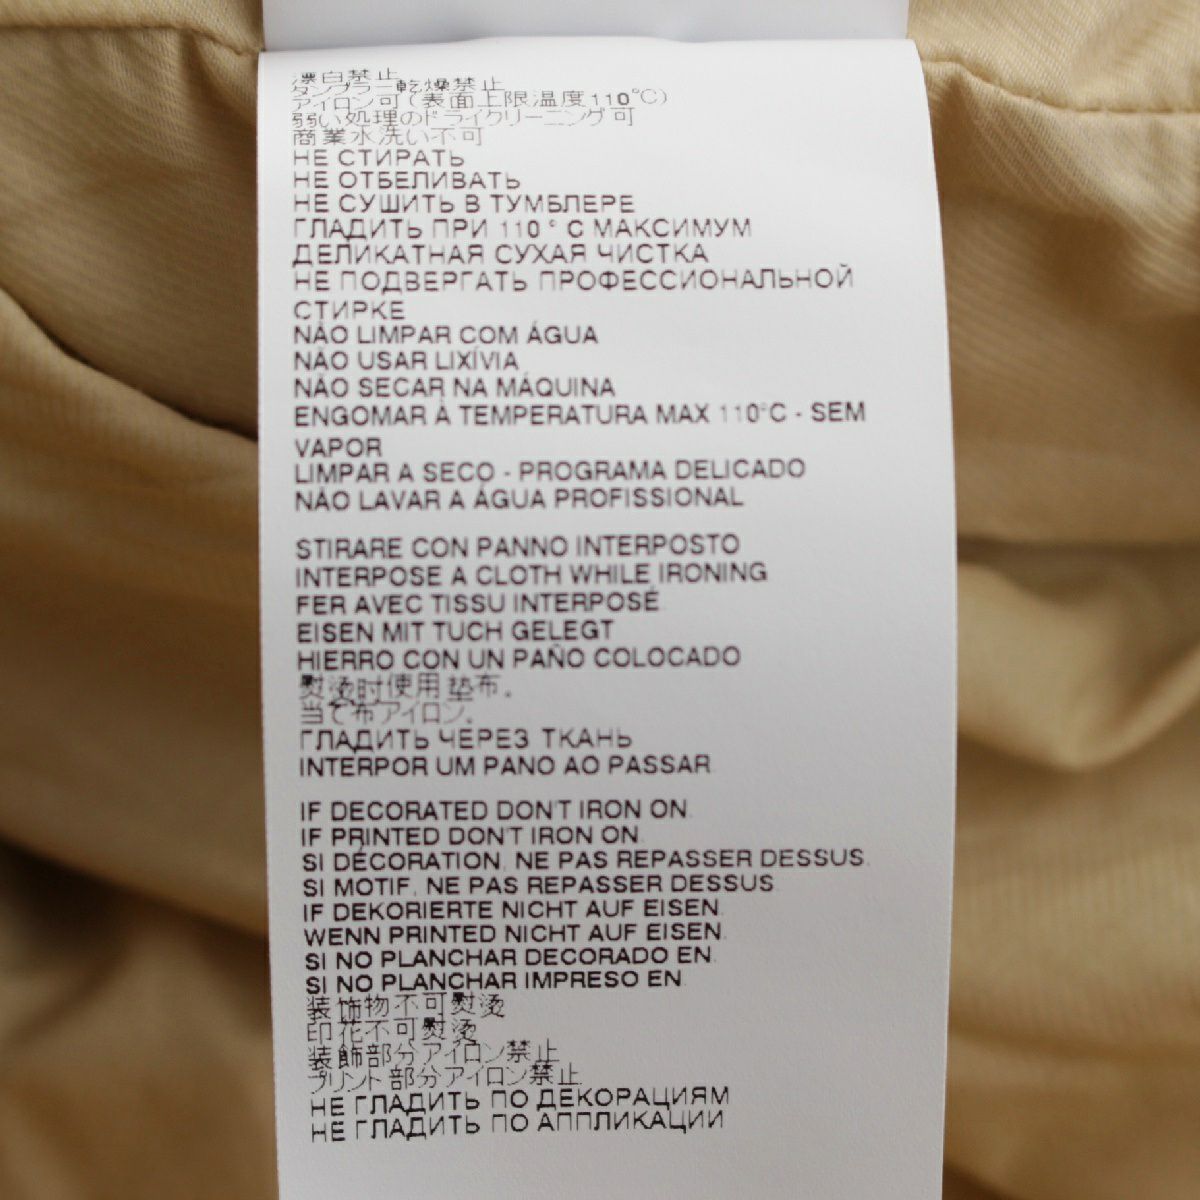 漂白禁止
タンブラー乾燥禁止
アイロン可(表面上限温度110℃)
弱い処理のドライクリーニング可
商業水洗い不可
НЕ СТИРАТЬ
НЕ ОТБЕЛИВАТЬ
НЕ СУШИТЬ В ТУМБЛЕРЕ
ГЛАДИТЬ ПРИ 110° С МАКСИМУМ
ДЕЛИКАТНАЯ СУХАЯ ЧИСТКА
НЕ ПОДВЕРГАТЬ ПРОФЕССИОНАЛЬНОЙ
СТИРКЕ
NÃO LIMPAR COM ÁGUA
NÃO USAR LIXÍVIA
NÃO SECAR NA MÁQUINA
ENGOMAR À TEMPERATURA MAX 110°C - SEM
VAPOR
LIMPAR A SECO - PROGRAMA DELICADO
NÃO LAVAR A ÁGUA PROFISSIONAL
STIRARE CON PANNO INTERPOSTO
INTERPOSE A CLOTH WHILE IRONING
FER AVEC TISSU INTERPOSÉ.
EISEN MIT TUCH GELEGT
HIERRO CON UN PAÑO COLOCADO
熨烫时使用垫布。
当て布アイロン。
ГЛАДИТЬ ЧЕРЕЗ ТКАНЬ
INTERPOR UM PANO AO PASSAR.
IF DECORATED DON'T IRON ON.
IF PRINTED DON'T IRON ON.
SI DÉCORATION, NE PAS REPASSER DESSUS.
SI MOTIF, NE PAS REPASSER DESSUS.
IF DEKORIERTE NICHT AUF EISEN.
WENN PRINTED NICHT AUF EISEN.
SI NO PLANCHAR DECORADO EN.
SI NO PLANCHAR IMPRESO EN.
装饰物不可熨烫
印花不可熨烫
装飾部分アイロン禁止
プリント部分アイロン禁止.
НЕ ГЛАДИТЬ ПО ДЕКОРАЦИЯМ
НЕ ГЛАДИТЬ ПО АППЛИКАЦИИ